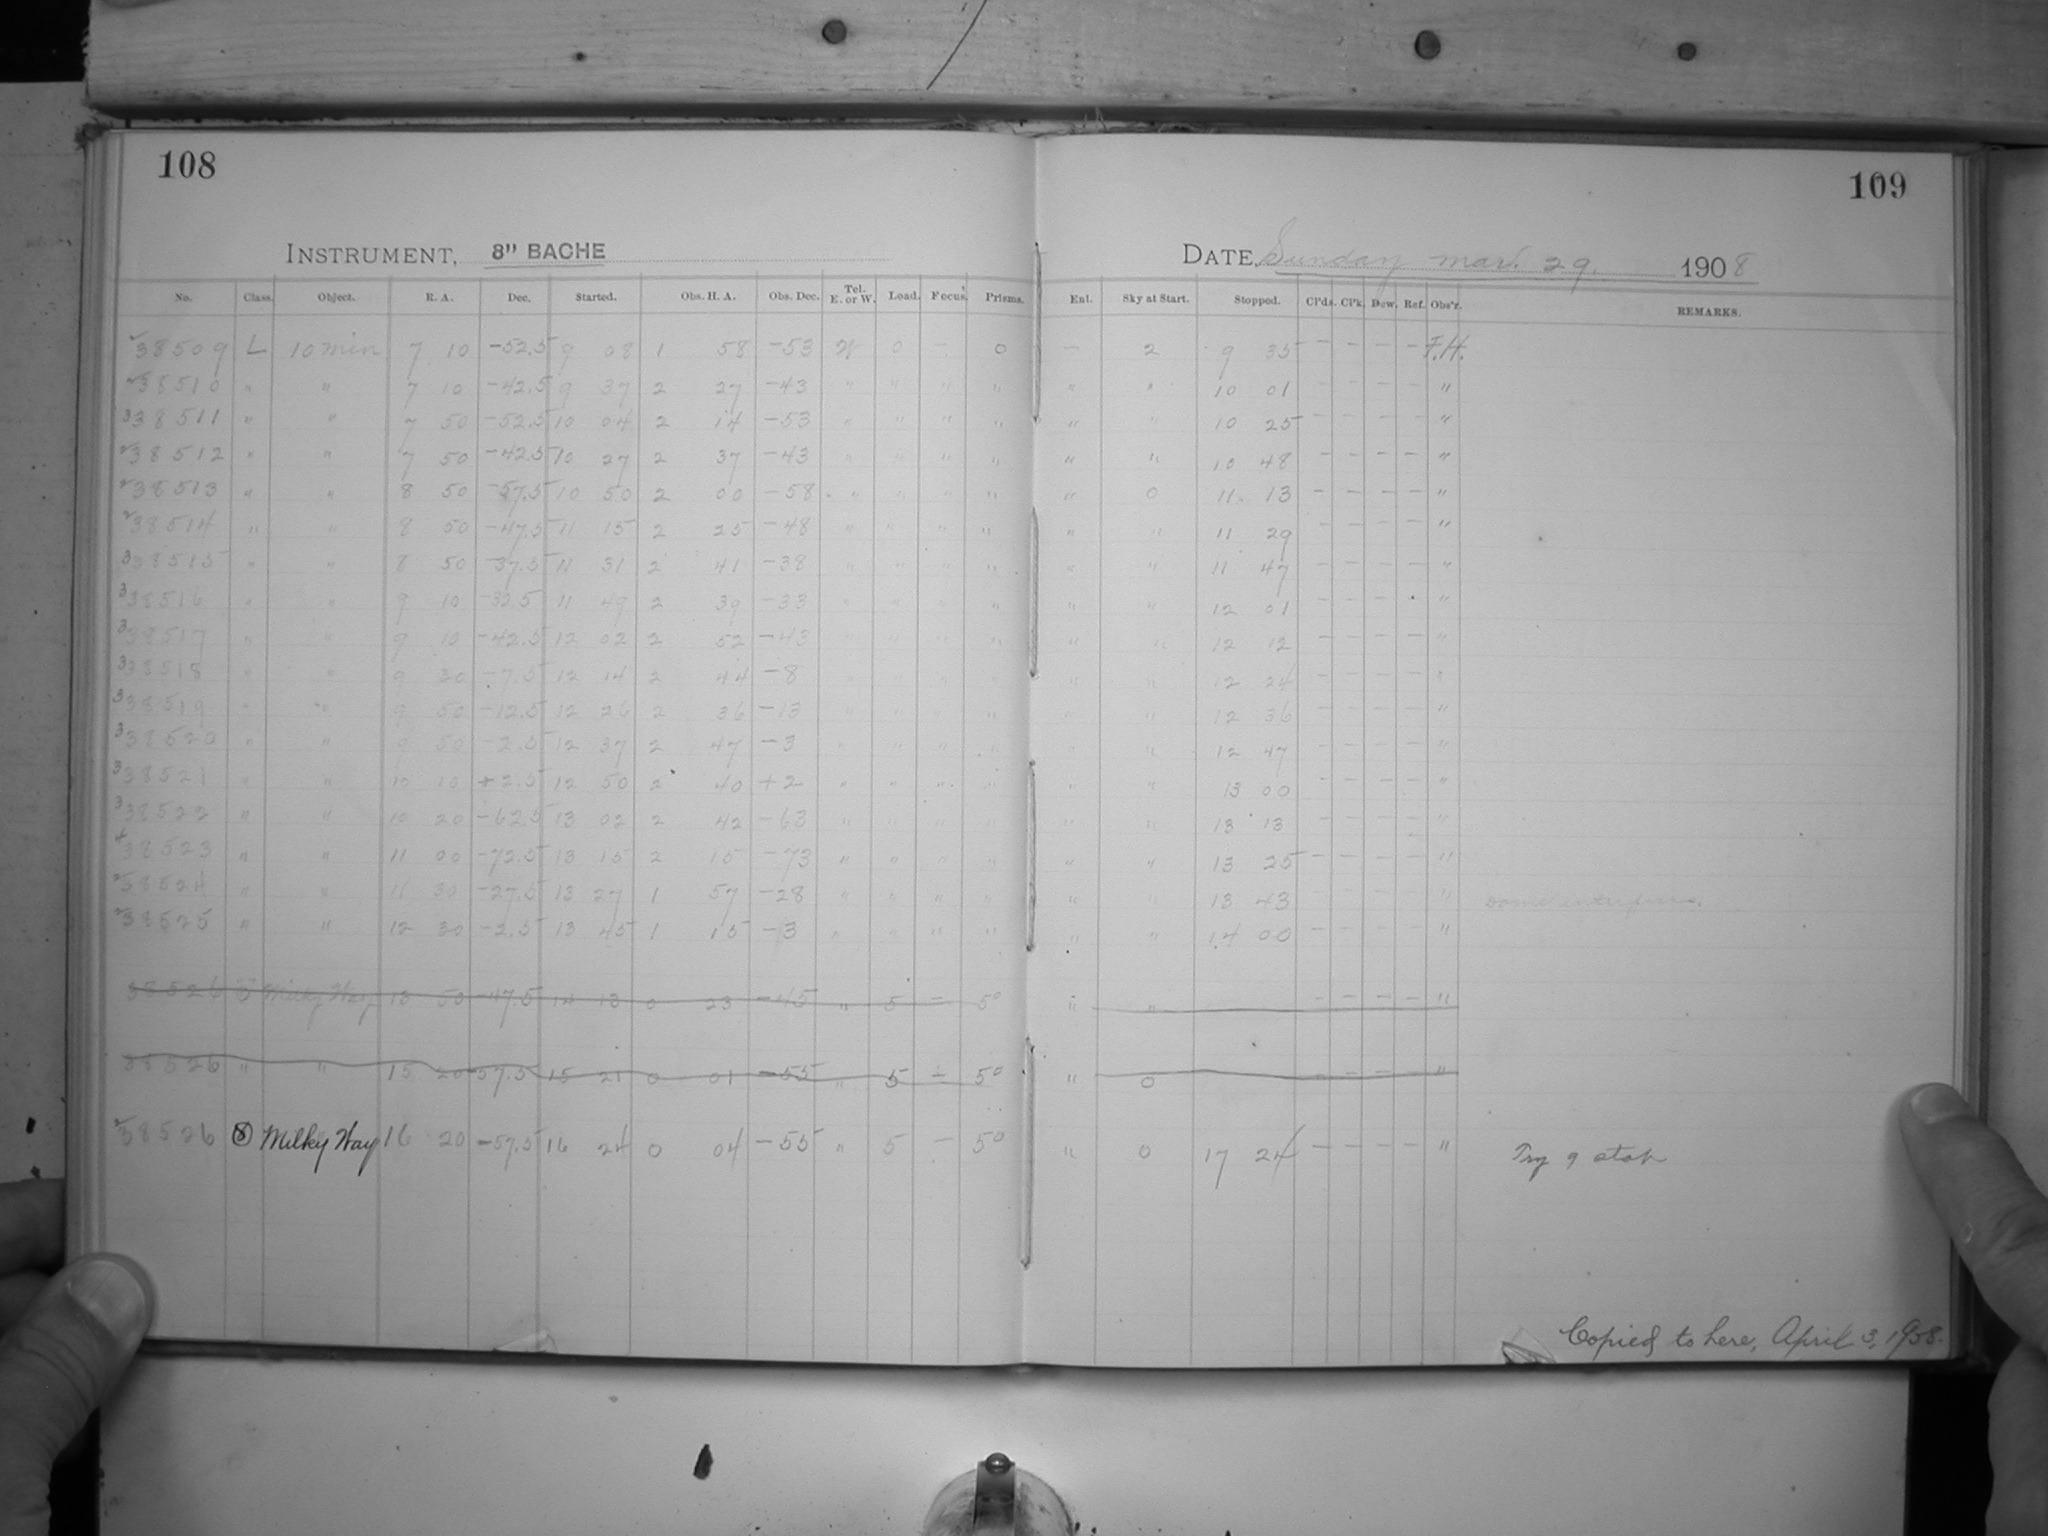 108
109
INSTRUMENT, 8" BACHE
DATE, Sunday Mar. 29. 1908
No. Class. Object. R. A. Dec. Started. Obs. H. A. Obs. Dec. Tel. E. or W. Load. Focus. Prisms. Enl. Sky at Start. Stopped. Cl'ds. Cl'k. Dew. Ref. Obs'r. REMARKS.
38509 L 10 min 7 10 -52.5 9 08 1 58 -53 W 0 - 0 - 2 9 35 - - - - F.H.
38510 " " 7 10 -42.5 9 37 2 27 -43 " " " " " " 10 01 - - - - "
38511 " " 7 50 -52.5 10 04 2 14 -53 " " " " " " 10 25 - - - - "
38512 " " 7 50 -42.5 10 27 2 37 -43 " " " " " " 10 48 - - - - "
38513 " " 8 50 -57.5 10 50 2 00 -58 " " " " " 0 11 13 - - - - "
38514 " " 8 50 -47.5 11 15 2 25 -48 " " " " " " 11 29 - - - - "
38515 " " 8 50 -37.5 11 31 2 41 -38 " " " " " " 11 47 - - - - "
38516 " " 9 10 -32.5 11 49 2 39 -33 " " " " " " 12 01 - - - - "
38517 " " 9 10 -42.5 12 02 2 52 -43 " " " " " " 12 12 - - - - "
38518 " " 9 30 -7.5 12 14 2 44 -8 " " " " " " 12 24 - - - - "
38519 " " 9 50 -12.5 12 26 2 36 -13 " " " " " " 12 36 - - - - "
38520 " " 9 50 -2.5 12 37 2 47 -3 " " " " " " 12 47 - - - - "
38521 " " 10 10 +2.5 12 50 2 40 +2 " " " " " " 13 00 - - - - "
38522 " " 10 20 -62.5 13 02 2 42 -63 " " " " " " 13 13 - - - - "
38523 " " 11 00 -72.5 13 15 2 15 -73 " " " " " " 13 25 - - - - "
38524 " " 11 30 -27.5 13 27 1 57 -28 " " " " " " 13 43 - - - - " Dome
38525 " " 12 30 -2.5 13 45 1 15 -3 " " " " " " 14 00 - - - - "
38526 Milky Way 13 50 -47.5 14 13 0 23 -45 " 5 - 5° " " - - - - "
38526 " " 15 20 -57.5 15 21 0 01 -55 " 5 - 5° " 0 - - - - "
38526 Milky Way 16 20 -57.5 16 24 0 04 -55 " 5 - 5° " 0 17 24 - - - - " Try 9 stop
Copied to here, April 3, 1908.